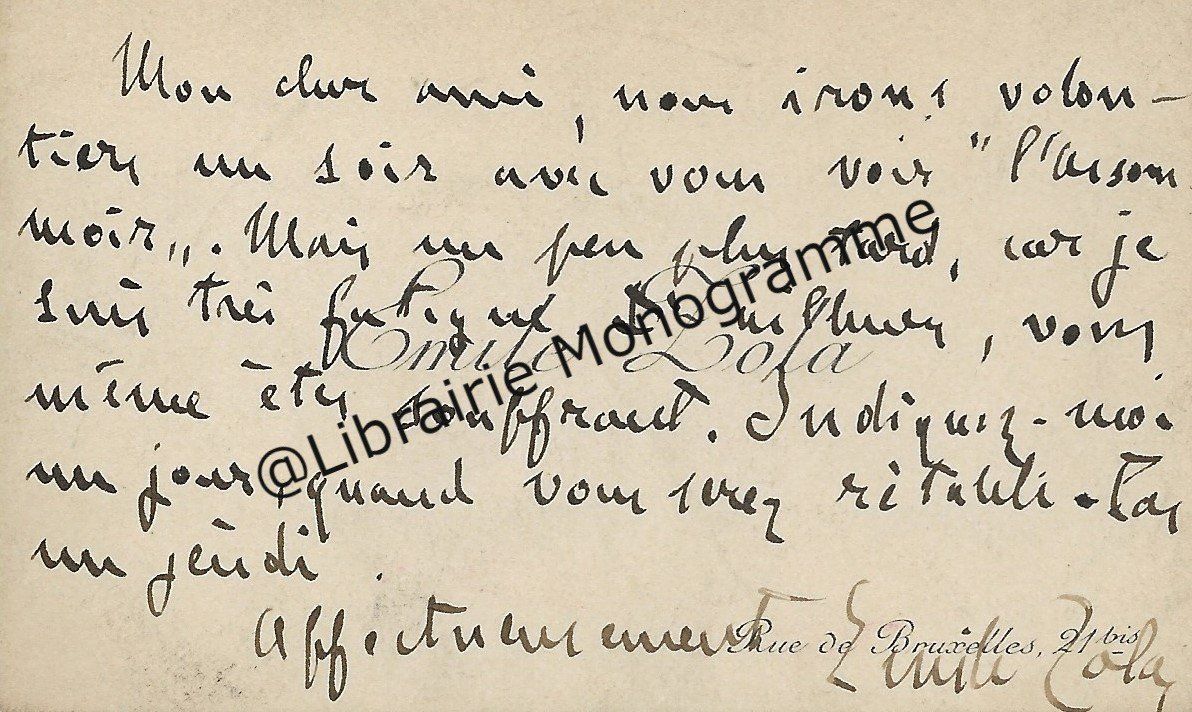 Mon cher ami, nous irons volon-
tiers un soir avec vous voir "l'Assom
moir„. Mais un peu plus tard, car je
suis très fatigué et vous
même êtes souffrant. Indiquez-moi
un jour, quand vous serez rétabli. Pas
un jeudi.
Affectueusement
Emile Zola
Emile Zola
Rue de Bruxelles, 21 bis
@Librairie Monogramme